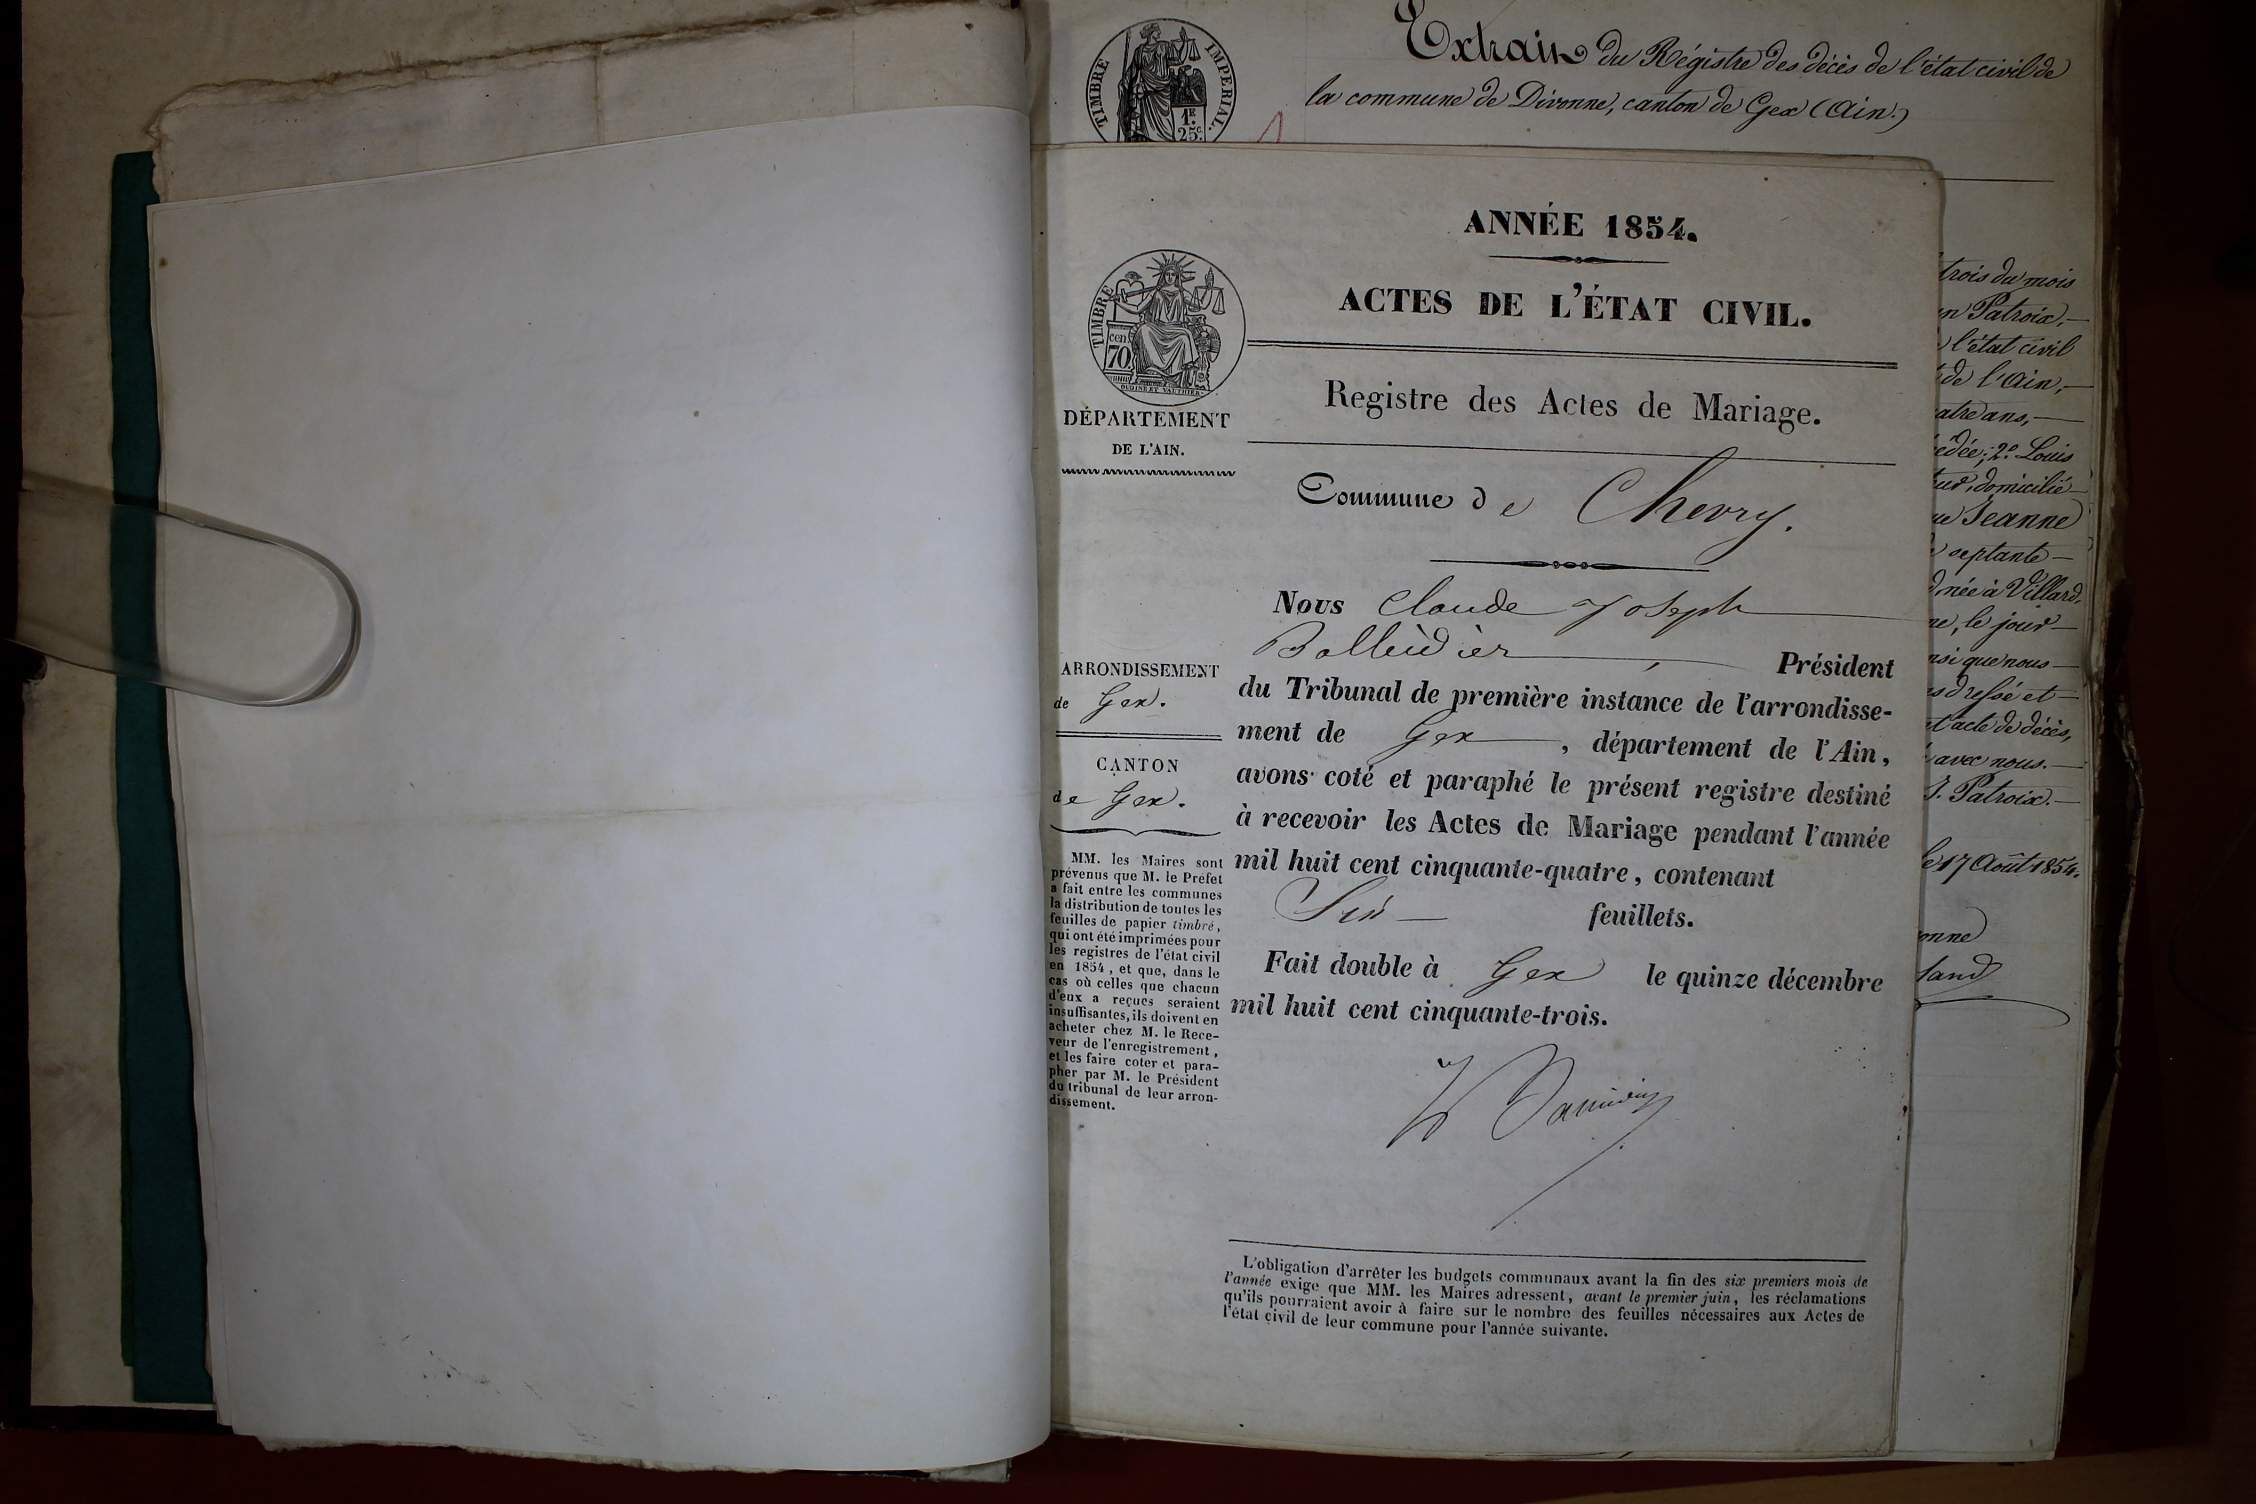 Extrait du Régistre des décès de l'état civil de
la commune de Divonne, canton de Gex (Ain.)
TIMBRE IMPERIAL.
1.E
25.c
ANNÉE 1854.
ACTES DE L'ÉTAT CIVIL.
Registre des Actes de Mariage.
TIMBRE
cen.
70.
DÉPARTEMENT
DE L'AIN.
Commune de Chevry.
Nous Claude Joseph
Balleidier, Président
du Tribunal de première instance de l'arrondisse-
ment de Gex, département de l'Ain,
avons coté et paraphé le présent registre destiné
à recevoir les Actes de Mariage pendant l'année
mil huit cent cinquante-quatre, contenant
Six feuillets.
Fait double à Gex le quinze décembre
mil huit cent cinquante-trois.
ARRONDISSEMENT
de Gex.
CANTON
de Gex.
MM. les Maires sont
prévenus que M. le Préfet
a fait entre les communes
la distribution de toutes les
feuilles de papier timbré,
qui ont été imprimées pour
les registres de l'état civil
en 1854, et que, dans le
cas où celles que chacun
d'eux a reçues seraient
insuffisantes, ils doivent en
acheter chez M. le Rece-
veur de l'enregistrement,
et les faire coter et para-
pher par M. le Président
du tribunal de leur arron-
dissement.
L'obligation d'arrêter les budgets communaux avant la fin des six premiers mois de
l'année exige que MM. les Maires adressent, avant le premier juin, les réclamations
qu'ils pourraient avoir à faire sur le nombre des feuilles nécessaires aux Actes de
l'état civil de leur commune pour l'année suivante.
trois du mois
Patroix,
l'état civil
de l'Ain,
ans,
2.o Louis
domicilié
Jeanne
septante
née à Villard,
le jour
que nous
dressé et
acte de décès,
avec nous.
J. Patroix.
le 17 Août 1854.